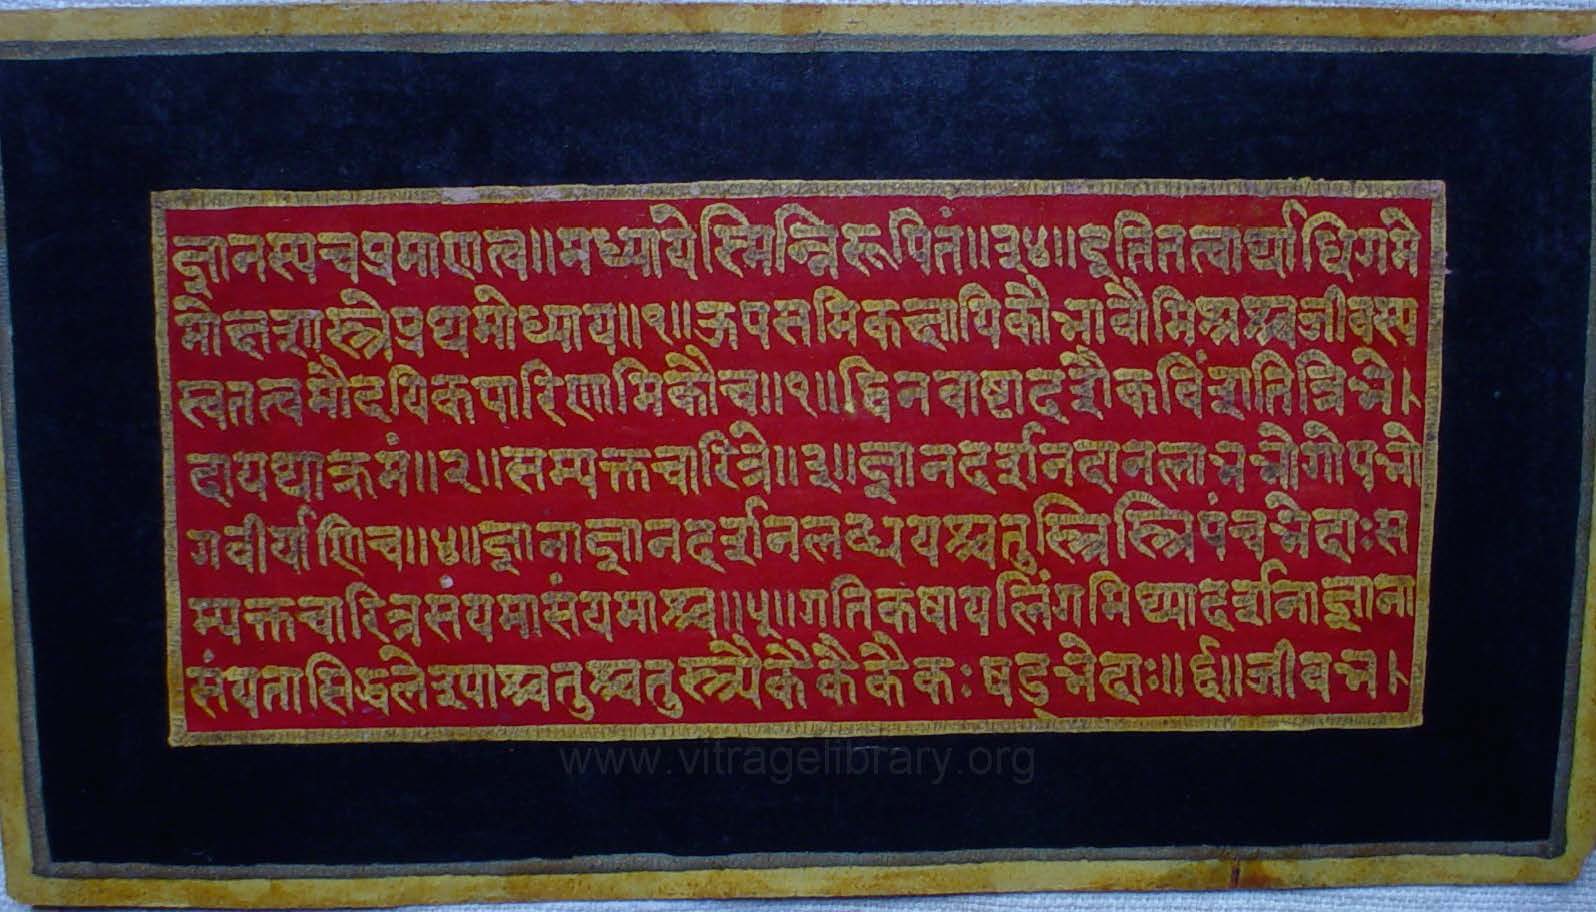 ज्ञानस्यचप्रमाणत्व॥मध्यायेस्मिन्निरूपितं॥३४॥इतितत्वार्थाधिगमे
मोक्षशास्त्रेप्रथमोध्याय॥१॥ऊपसमिकक्षायिकौभावौमिश्रश्चजीवस्य
स्वतत्वमौदयिकपारिणामिकौच॥१॥द्विनवाष्टादशैकविंशतित्रिभे।
दायथाक्रमं॥२॥सम्यक्तचारित्रे॥३॥ज्ञानदर्शनदानलाभभोगोपभो
गवीर्याणिच॥४॥ज्ञानाज्ञानदर्शनलब्धयश्चतुस्त्रिस्त्रिपंचभेदाःस
म्यक्तचारित्रसंयमासंयमाश्च॥५॥गतिकषायलिंगमिथ्यादर्शनाज्ञाना
संयतासिद्धलेश्याश्चतुश्चतुस्त्र्यैकैकैकैकःषड्भेदाः॥६॥जीवभ।
www.vitragelibrary.org